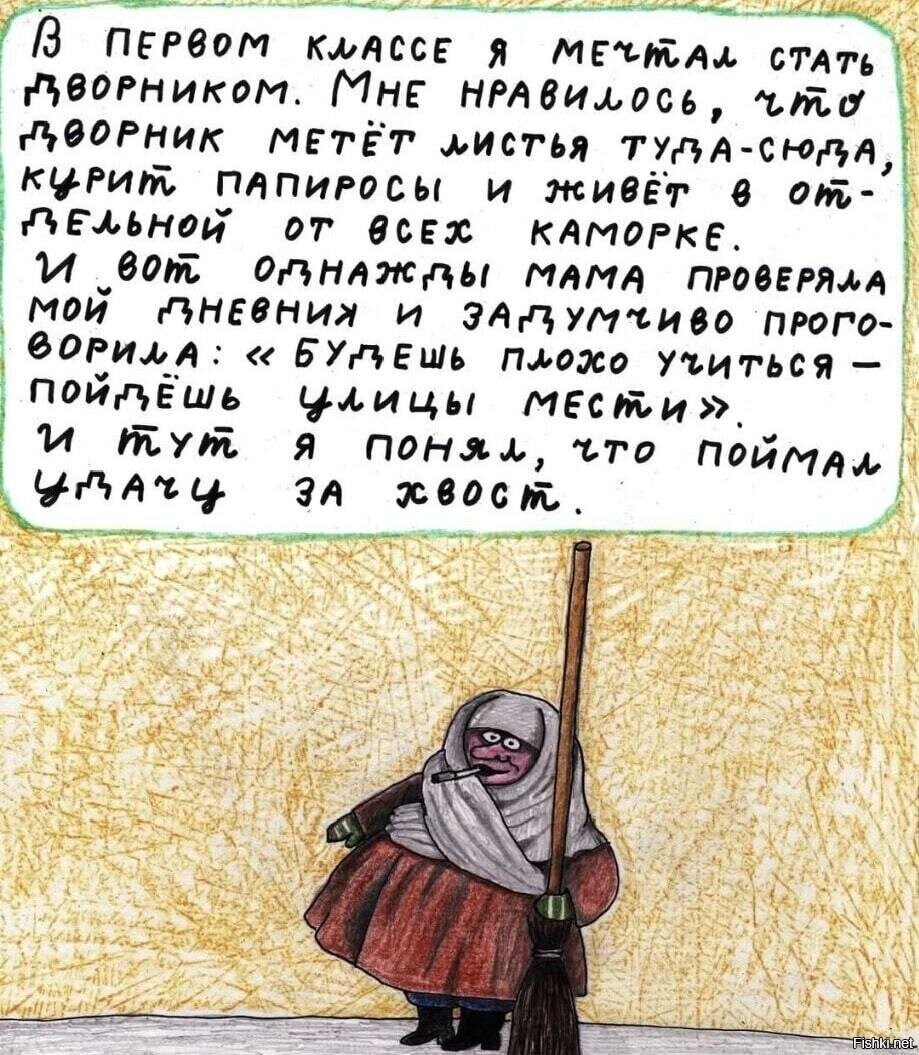 В первом классе я мечтал стать
дворником. Мне нравилось, что
дворник метёт листья туда-сюда,
курит папиросы и живёт в от-
дельной от всех каморке.
И вот однажды мама проверяла
мой дневник и задумчиво прого-
ворила: « Будешь плохо учиться —
пойдёшь улицы мести».
И тут я понял, что поймал
удачу за хвост.
Fishki.net